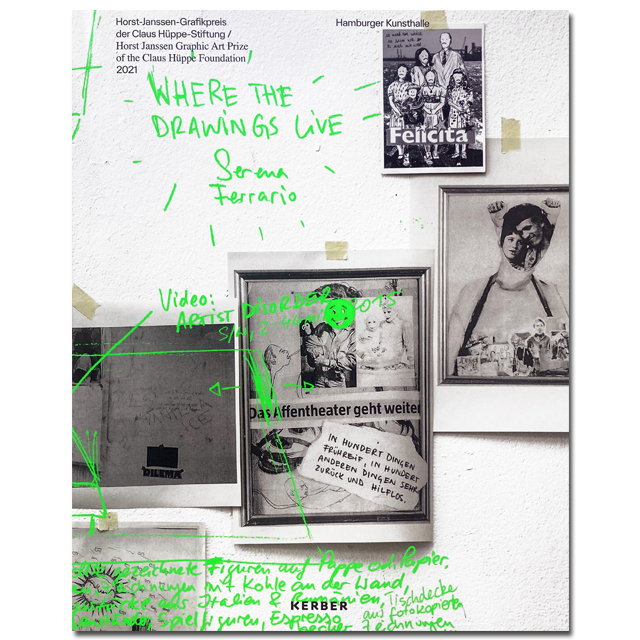 Horst-Janssen-Grafikpreis
der Claus Hüppe-Stiftung /
Horst Janssen Graphic Art Prize
of the Claus Hüppe Foundation
2021
Hamburger Kunsthalle
WHERE THE
DRAWINGS LIVE
Serena
Ferrario
Felicita
Video:
ARTIST DISORDER 2015
Das Affentheater geht weiter
IN HUNDERT DINGEN
FRÜHREIF, IN HUNDERT
ANDEREN DINGEN SEHR
ZURÜCK UND HILFLOS.
DILEMA
gezeichnete Figuren auf Pappe od. Papier.
mit Kohle an der Wand,
aus Italien & Rumänien, Tischdecke
aus fotokopierten
Spielfiguren, Espresso
becher, Zeichnungen
KERBER